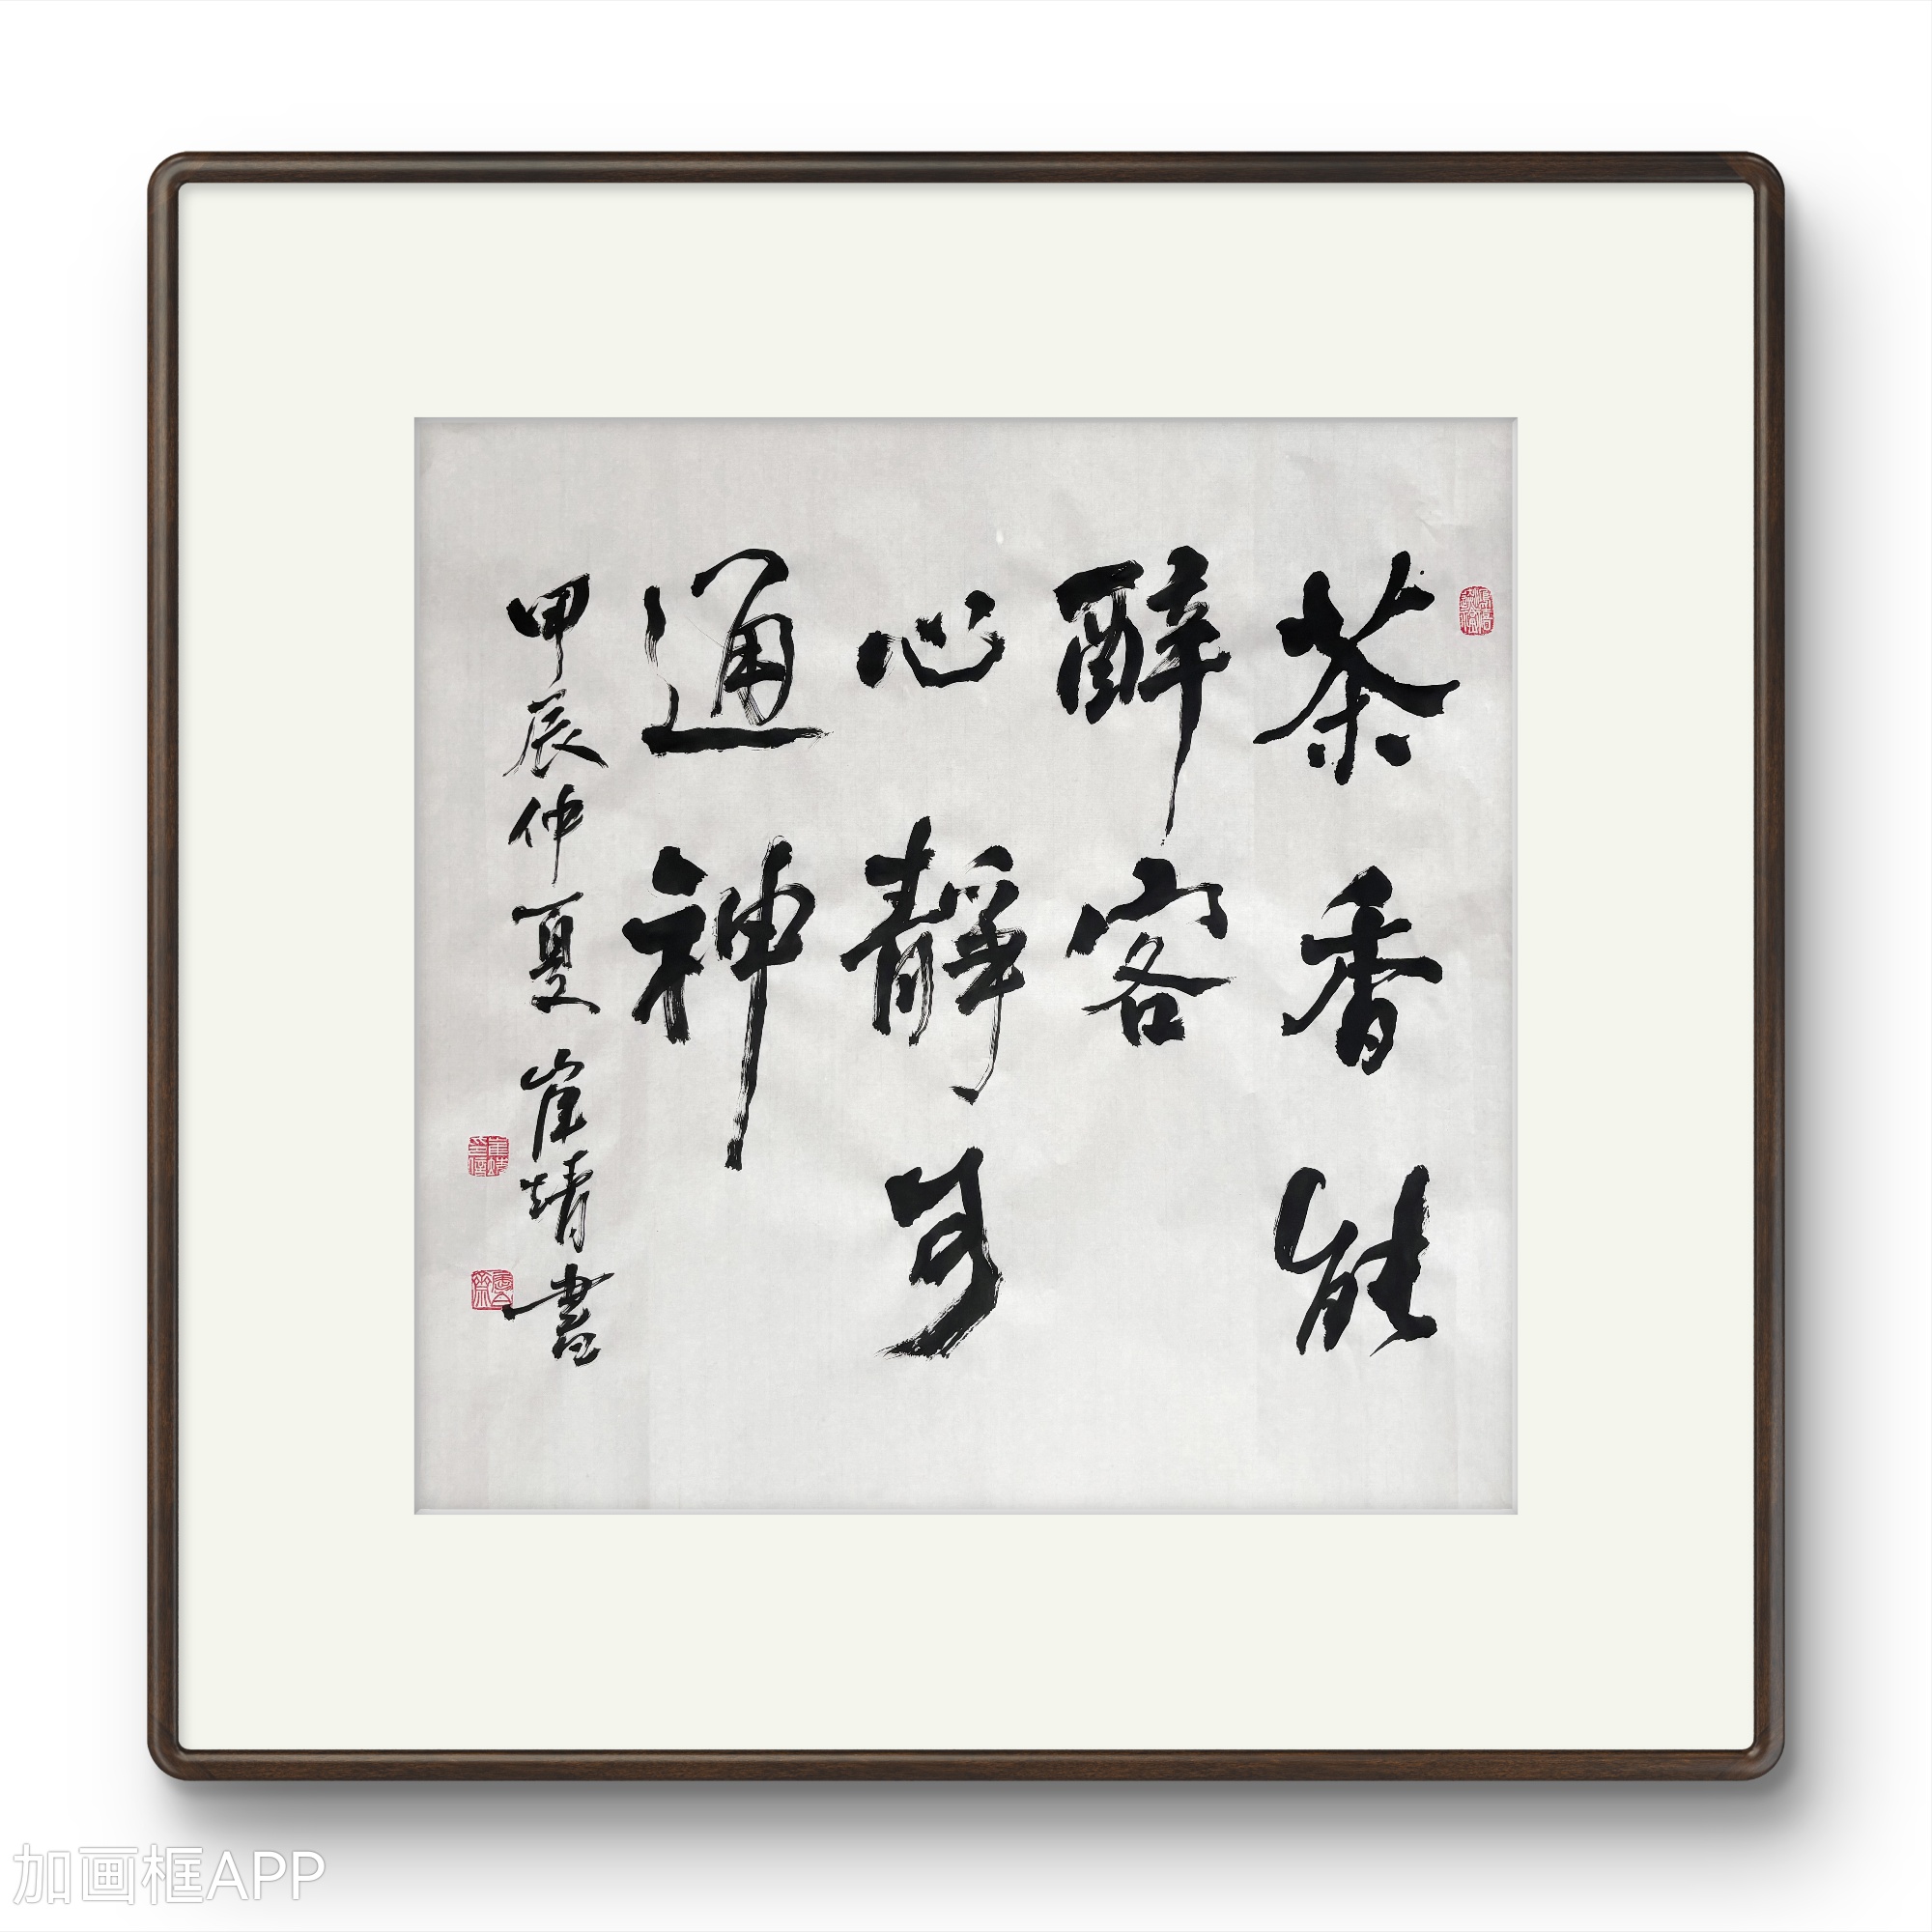 茶香能
醉客
心靜可
通神
甲辰仲夏崔靖書
加画框APP